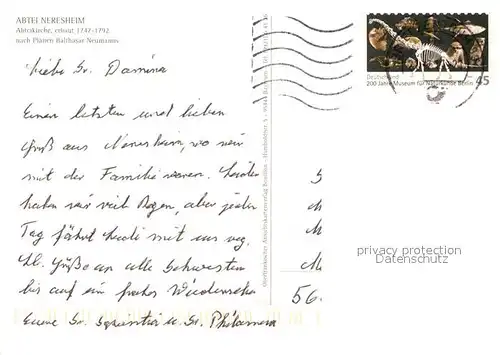 ABTEI NERESHEIM
Abteikirche, erbaut 1747-1792
nach Plänen Balthasar Neumanns
Liebe Sr. Damina
Einen letzten und lieben
Gruß aus Neresheim, wo wir
mit der Familie waren. Leider
haben wir viel Regen, aber jeden
Tag fährt Heidi mit uns weg.
Lb. Grüße an alle Schwestern
bis auf ein frohes Wiedersehen
Eure Sr. u. Sr. Philomena
Deutschland
45
200 Jahre Museum für Naturkunde Berlin
privacy protection
Datenschutz
56